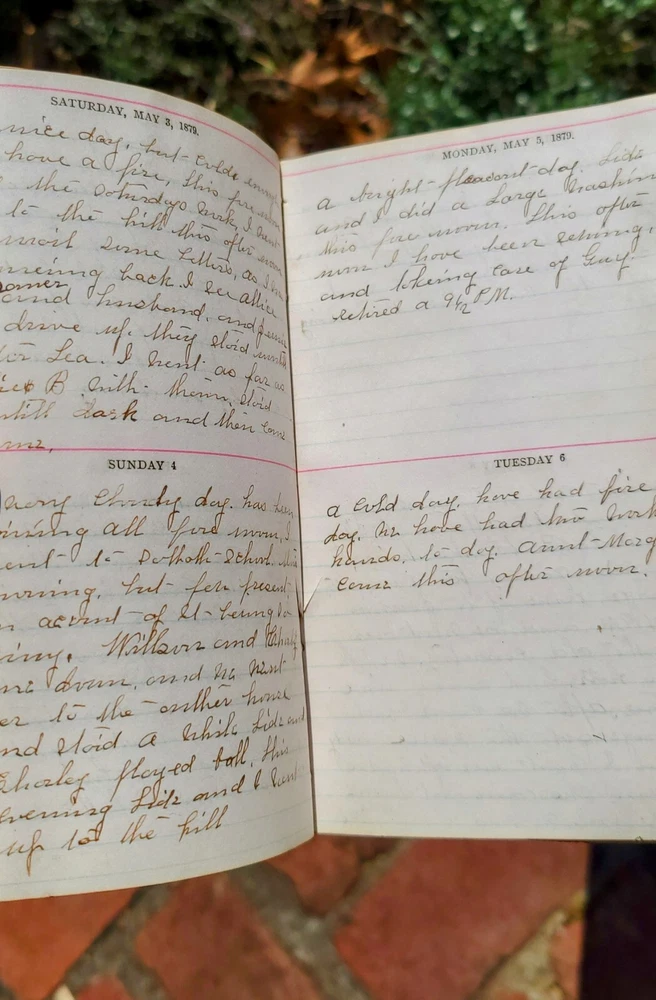 SATURDAY, MAY 3, 1879.
nice day, but colde
have a fire, this fore noon
the Saturdays work, I went
to the hill this after noon
mail some letters, as I
comeing back I see allie
and husband, and
drive up. they staid untill
for tea. I went as far as
B with them, staid
untill dark and then come
SUNDAY 4
very cloudy day. has been
raining all fore noon, I
went to Sabbath School. this
morning, but few present
on account of it being so
Willson and Charley
down, and we went
over to the other house
and staid a while Lide and
Charley played ball. this
evening Lide and I went
up to the hill
MONDAY, MAY 5, 1879.
a bright pleasant day. Lide
and I did a large washing
this fore noon. this after
noon I have been sewing,
and takeing care of Guy.
retired a 9 1/2 P.M.
TUESDAY 6
a cold day. have had fire
day. we have had two work
hands. to day. aunt Marg
come this after noon.